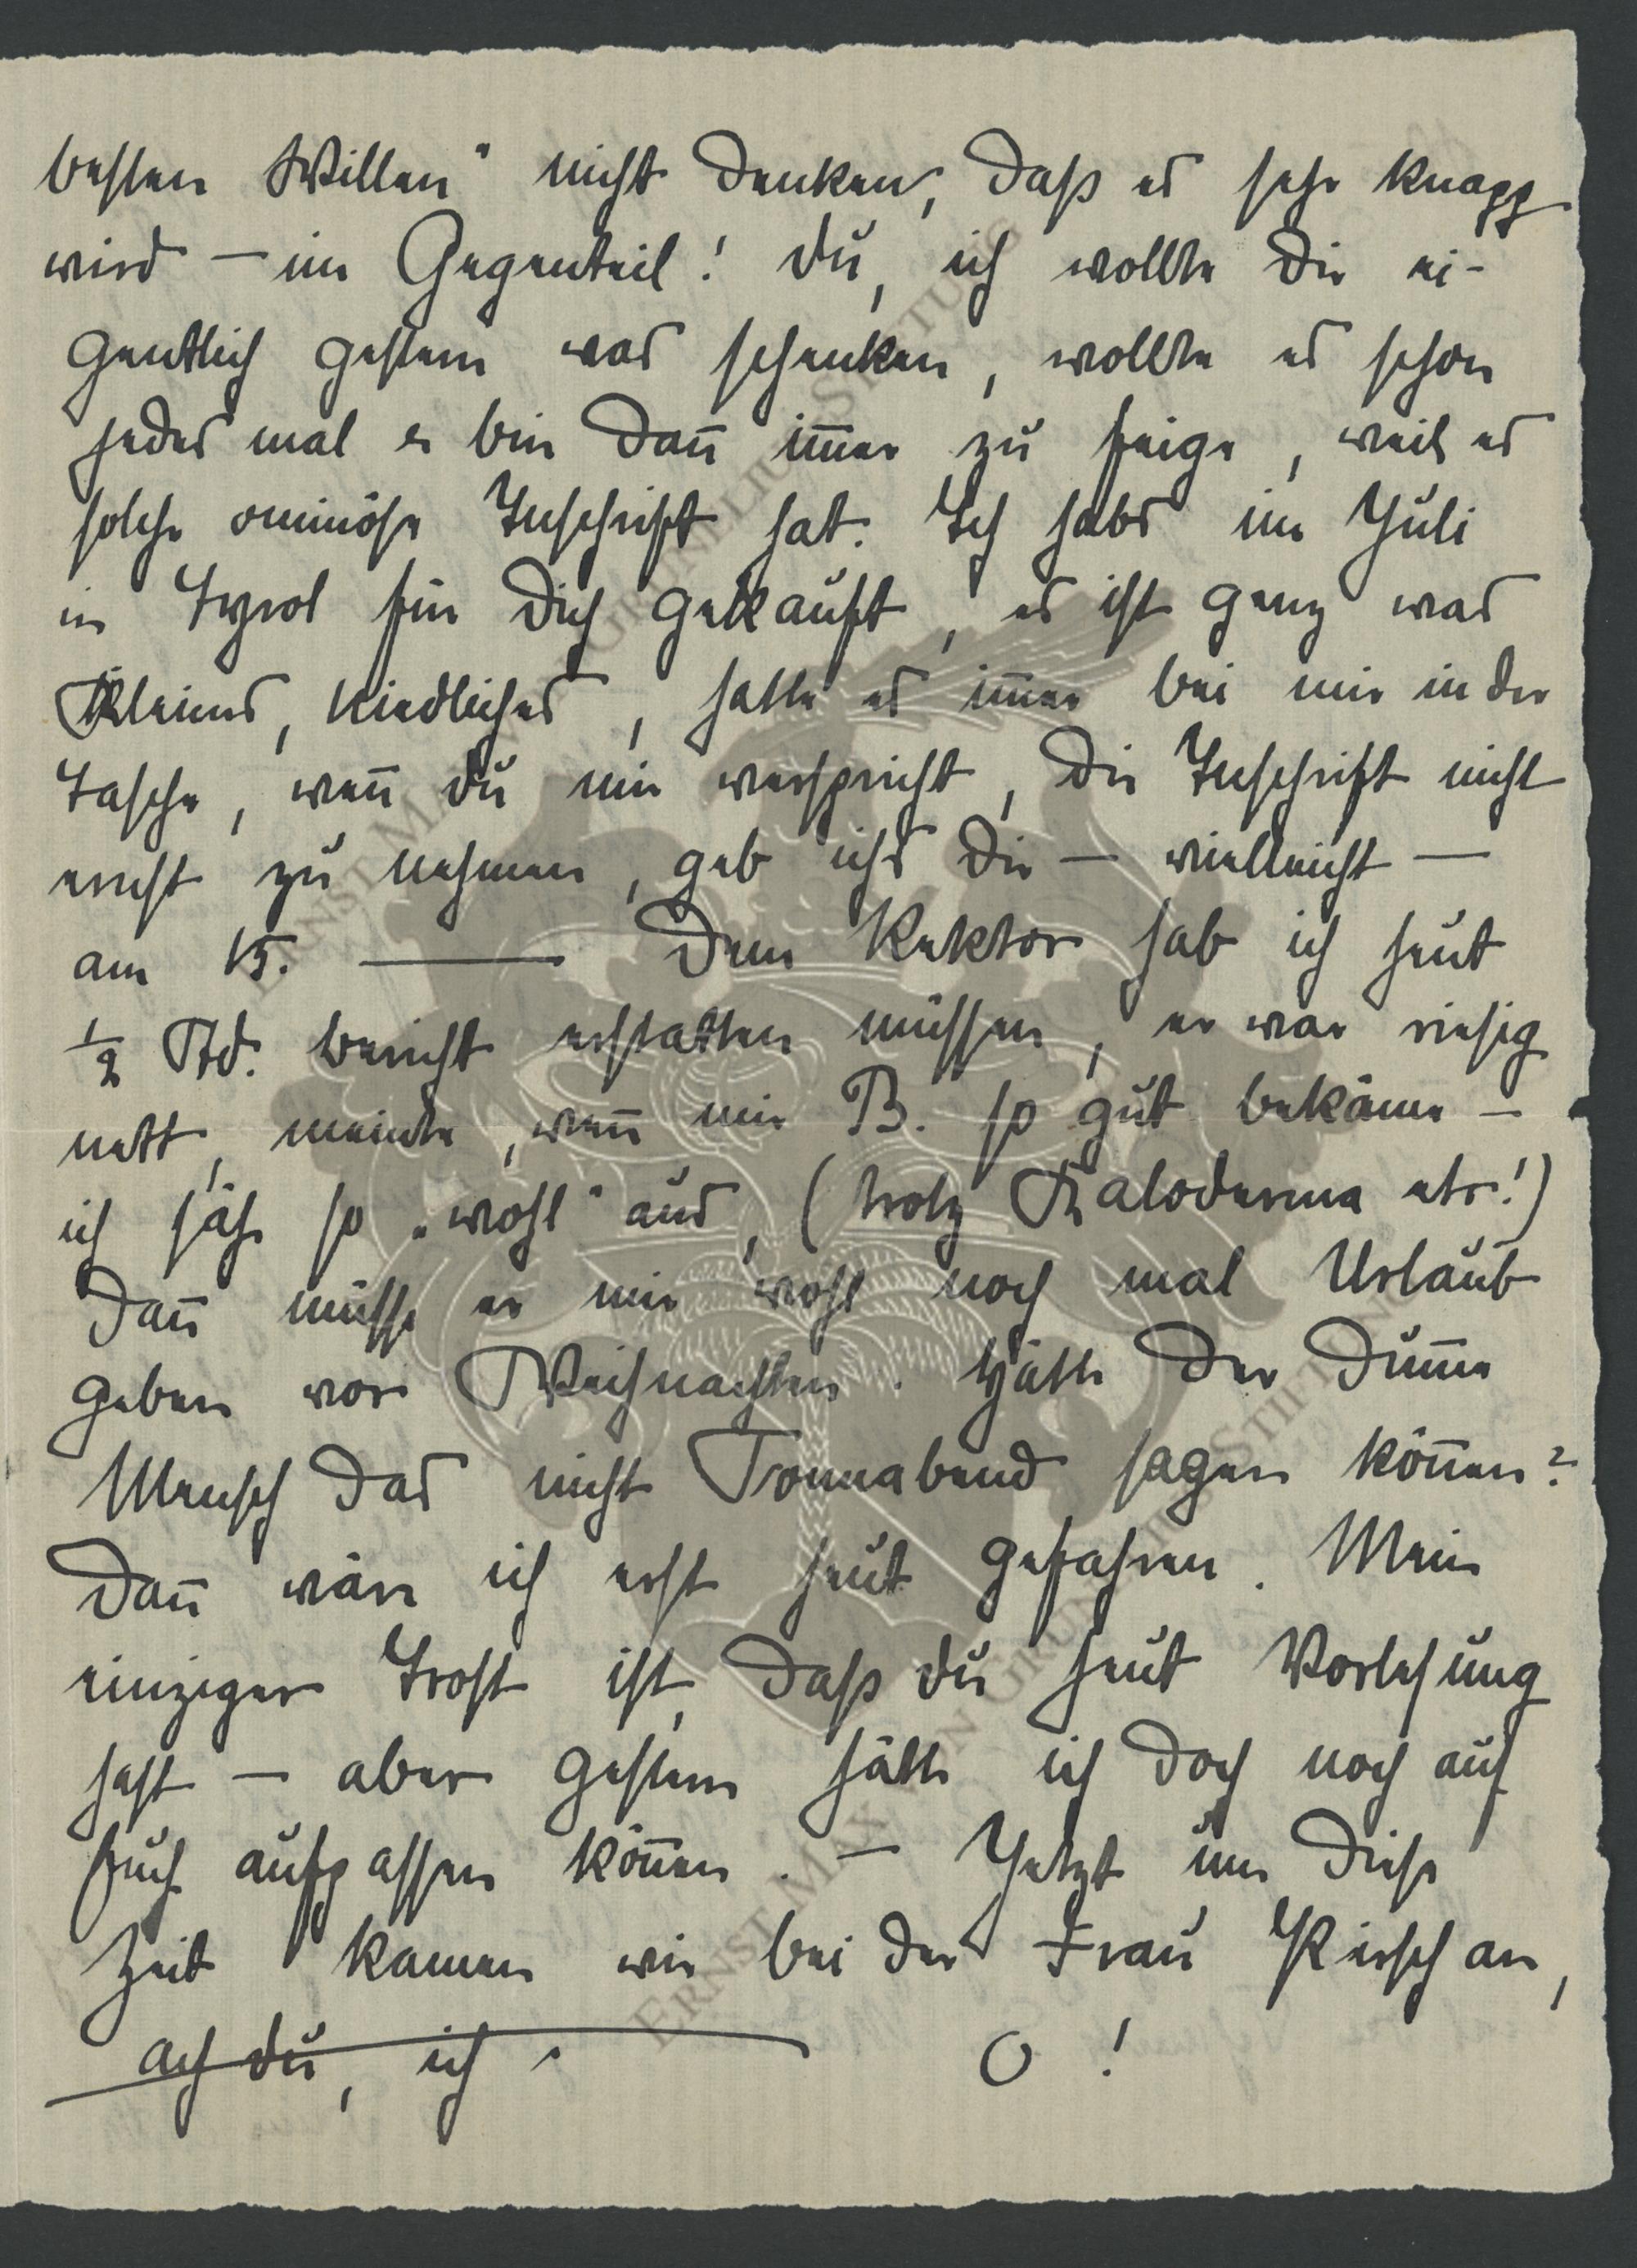 besten Willen“ nicht denken, daß es sehr knapp
wird – im Gegenteil! Du, ich wollte Dir ei-
gentlich gestern was schenken, wollte es schon
jedes mal & bin dañ im̄er zu feige, weil es
solche ominöse Inschrift hat. Ich habs im Juli
in Tyrol für Dich gekauft, es ist ganz was
Kleines, Niedliches, hatte es im̄er bei mir in der
Tasche, weñ du mir versprichst, die Inschrift nicht
ernst zu nehmen, geb ichs Dir – vielleicht –
am 15. — Dem Rektor hab ich heut
½ Std. bericht erstatten müssen, er war riesig
nett, meinte, weñ mir B. so gut bekäme –
ich sähe so „wohl“ aus, (trotz Kaloderma etc!)
dañ müsse er mir wohl noch mal Urlaub
geben vor Weihnachten. Hätte der dum̄e
Mensch das nicht Sonnabend sagen köñen?
Dañ wär ich erst heut gefahren. Mein
einziger Trost ist, daß du heut Vorlesung
hast – aber gestern hätte ich doch noch auf
Euch aufpassen köñen. – Jetzt um diese
Zeit kamen wir bei der Frau Kirsch an,
ach du, ich — O!
ERNST MAX VON GRUNELIUS-STIFTUNG
ERNST MAX VON GRUNELIUS-STIFTUNG